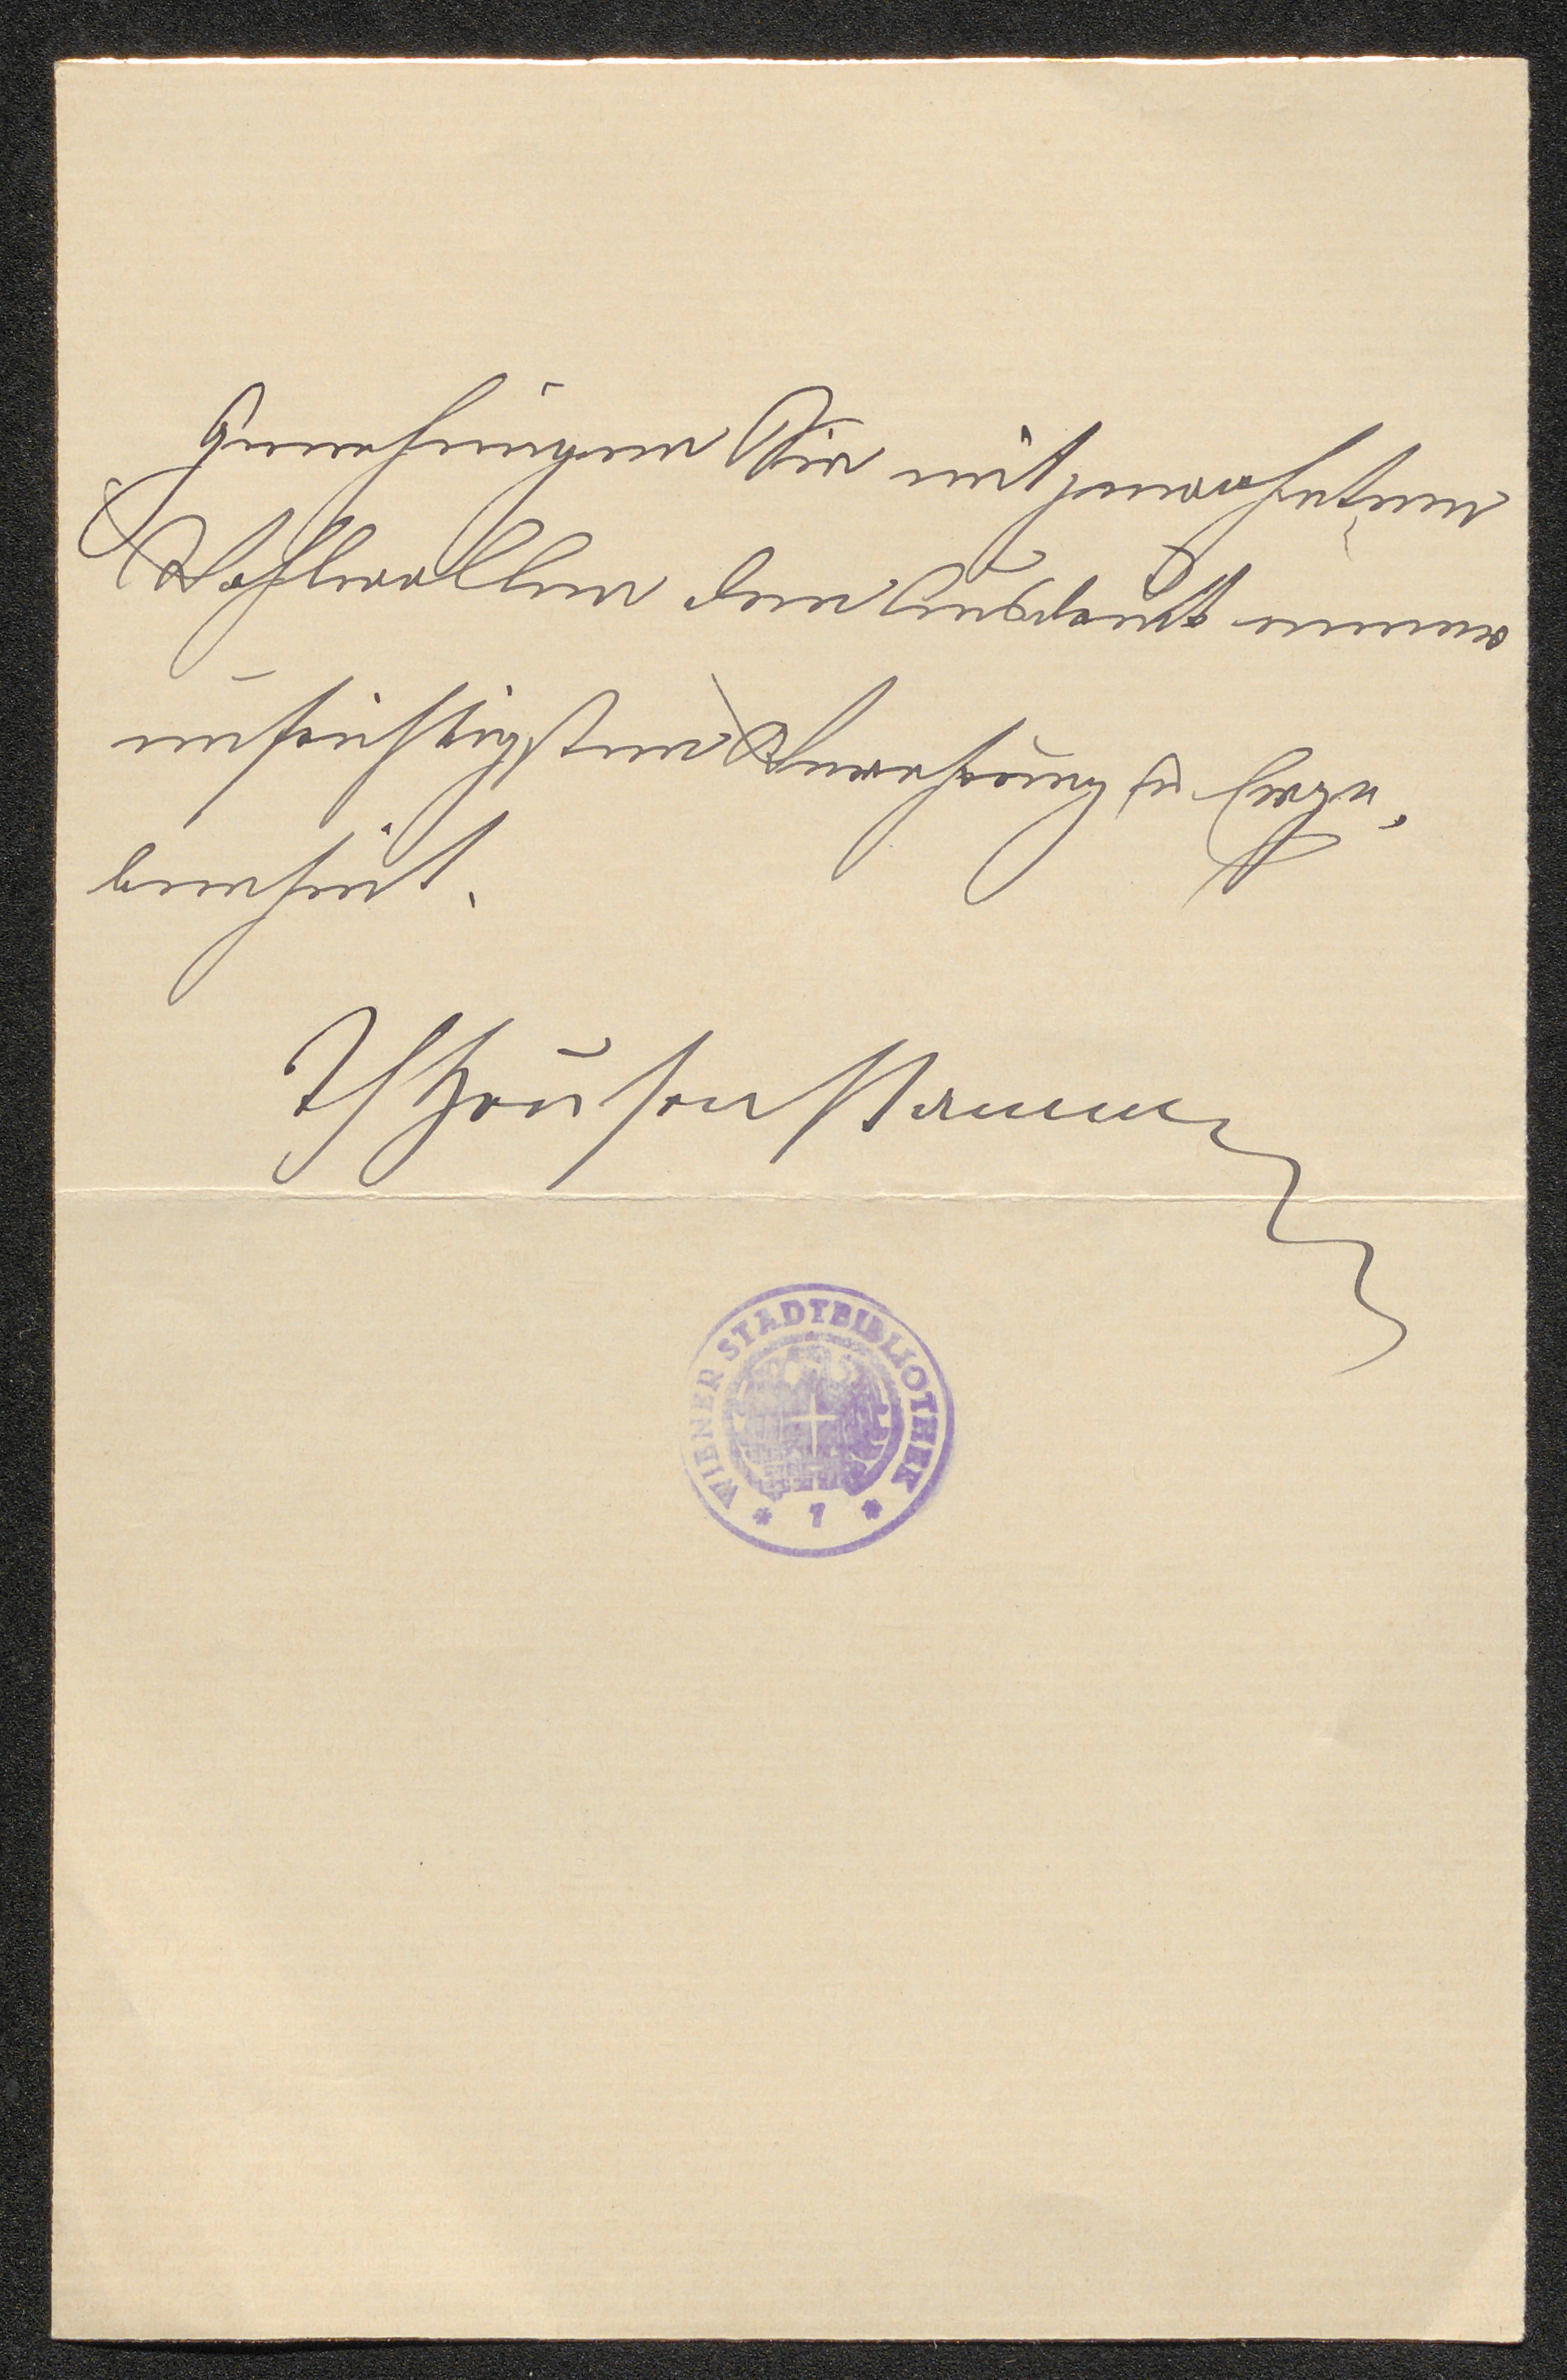 Genehmigen Sie mit gewohntem
Wohlwollen den Ausdruck meiner
aufrichtigsten Verehrung u Erge-
benheit.
Thausenstamm
WIENER STADTBIBLIOTHEK
* 7 *